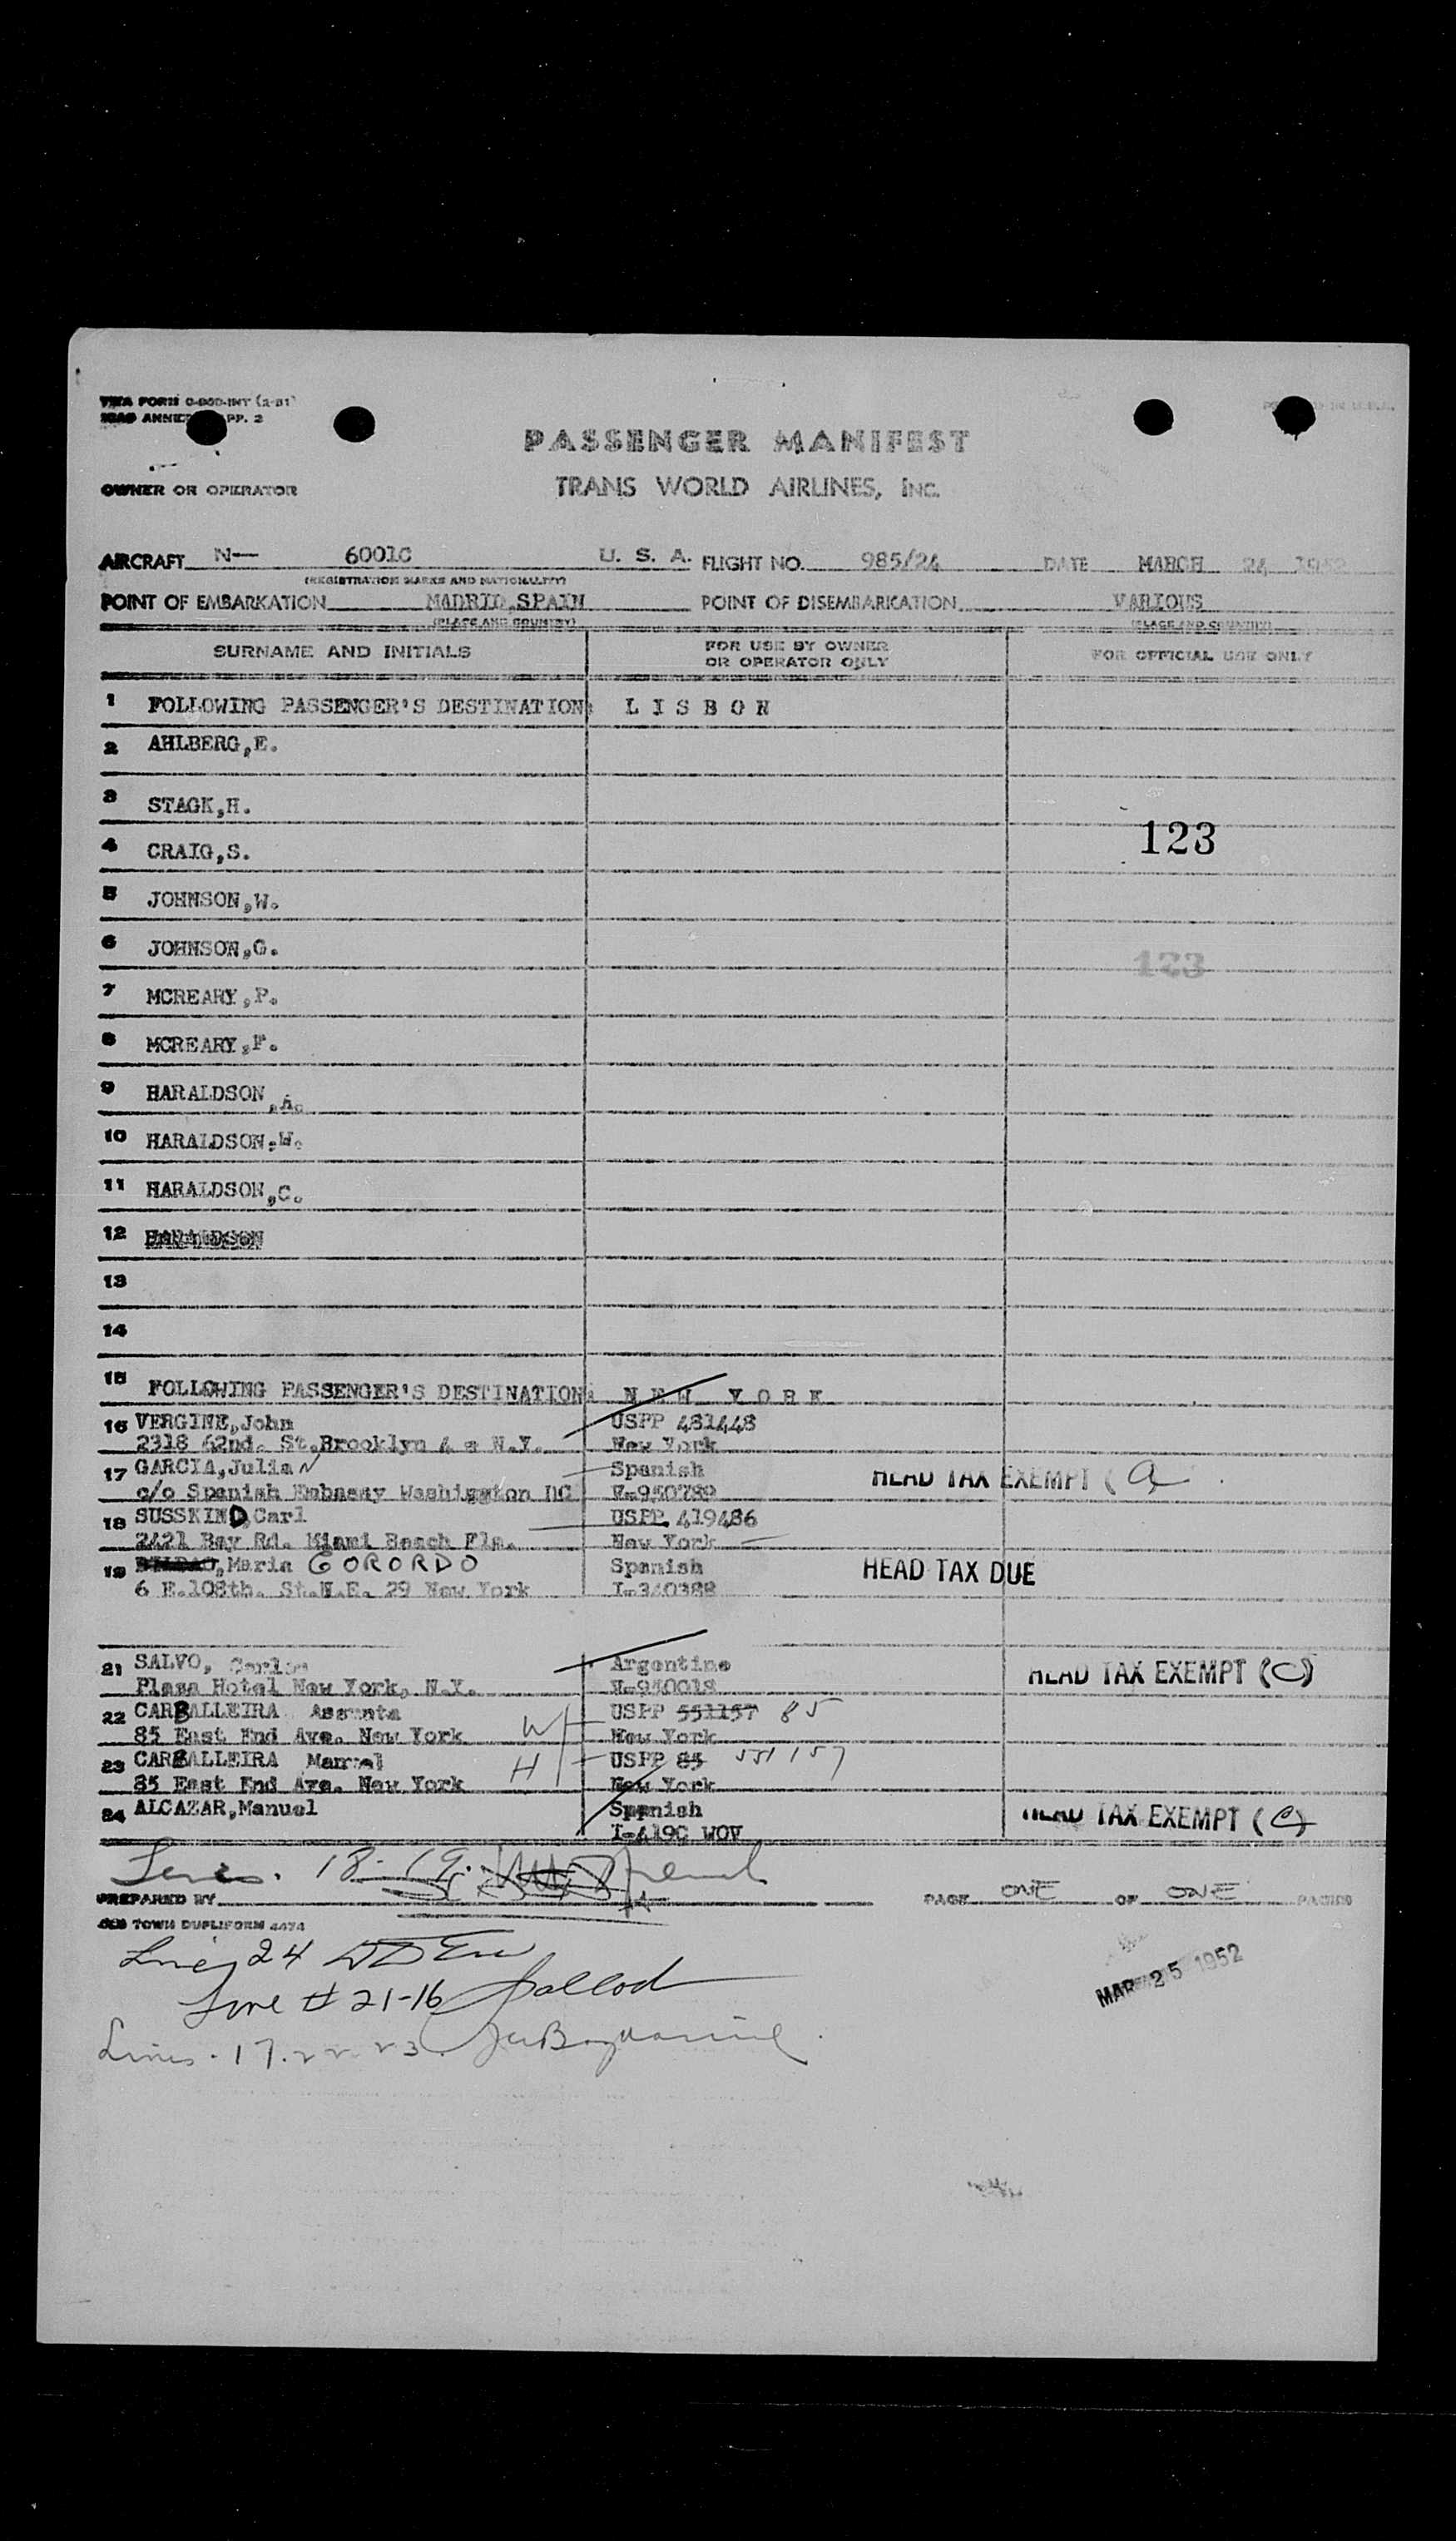 TWA FORM
PP. 2
PASSENGER MANIFEST
OWNER OR OPERATOR
TRANS WORLD AIRLINES, INC.
AIRCRAFT N— 6001C U. S. A. FLIGHT NO. 985/24 DATE MARCH 24 1952
(REGISTRATION MARKS AND NATIONALITY)
POINT OF EMBARKATION MADRID,SPAIN POINT OF DISEMBARKATION VARIOUS
(PLACE AND COUNTRY) (PLACE AND COUNTRY)
SURNAME AND INITIALS FOR USE BY OWNER OR OPERATOR ONLY FOR OFFICIAL USE ONLY
1 FOLLOWING PASSENGER'S DESTINATION: L I S B O N
2 AHLBERG,E.
3 STAGK,H.
123
4 CRAIG,S.
5 JOHNSON,W.
6 JOHNSON,G.
123
7 MCREARY,P.
8 MCREARY,F.
9 HARALDSON,A.
10 HARALDSON,W.
11 HARALDSON,C.
12 HARALDSON
13
14
15 FOLLOWING PASSENGER'S DESTINATION: N E W Y O R K
16 VERGINE,John USPP 481448
2318 62nd. St.Brooklyn 4 N.Y. New York
17 GARCIA,Julian Spanish HEAD TAX EXEMPT (a
c/o Spanish Embassy Washiggton DC V-950789
18 SUSSKIND,Carl USPP. 419486
2421 Bay Rd. Miami Beach Fla. New York
19 ,Maria GORORDO Spanish HEAD TAX DUE
6 E.108th. St.N.E. 29 New York I-340388
21 SALVO, Carlos Argentine HEAD TAX EXEMPT (C)
Plaza Hotel New York, N.Y. V-940018
22 CARBALLEIRA Assunta USPP 551157 85
85 East End Ave. New York W New York
23 CARBALLEIRA Manuel USPP 85 551157
85 East End Ave. New York H New York
24 ALCAZAR,Manuel Spanish HEAD TAX EXEMPT (C)
I-419C WOV
Lines. 18-19.
PREPARED BY PAGE ONE OF ONE PAGES
OLD TOWN DUPLIFORM 4474
Line 24
MAR 25 1952
Line # 21-16
Lines. 17.22.23.